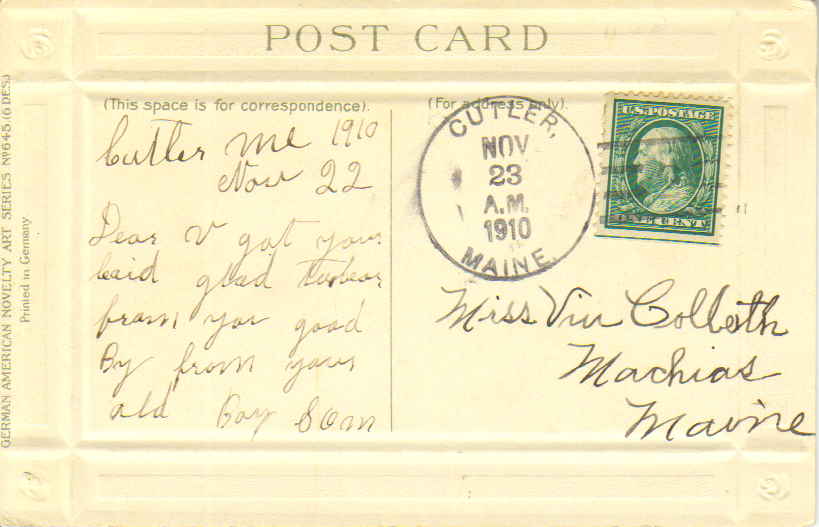 POST CARD
(This space is for correspondence).
Cutler Me 1910
Nov 22
Dear V got your
caid glad tu hear
from yor good
By from yours
old Boy Som
(For address only).
CUTLER,
NOV
23
A.M.
1910
MAINE.
U.S. POSTAGE
ONE CENT
Miss Viu
Machias
Maine
GERMAN AMERICAN NOVELTY ART SERIES No 645 (6 DES.)
Printed in Germany